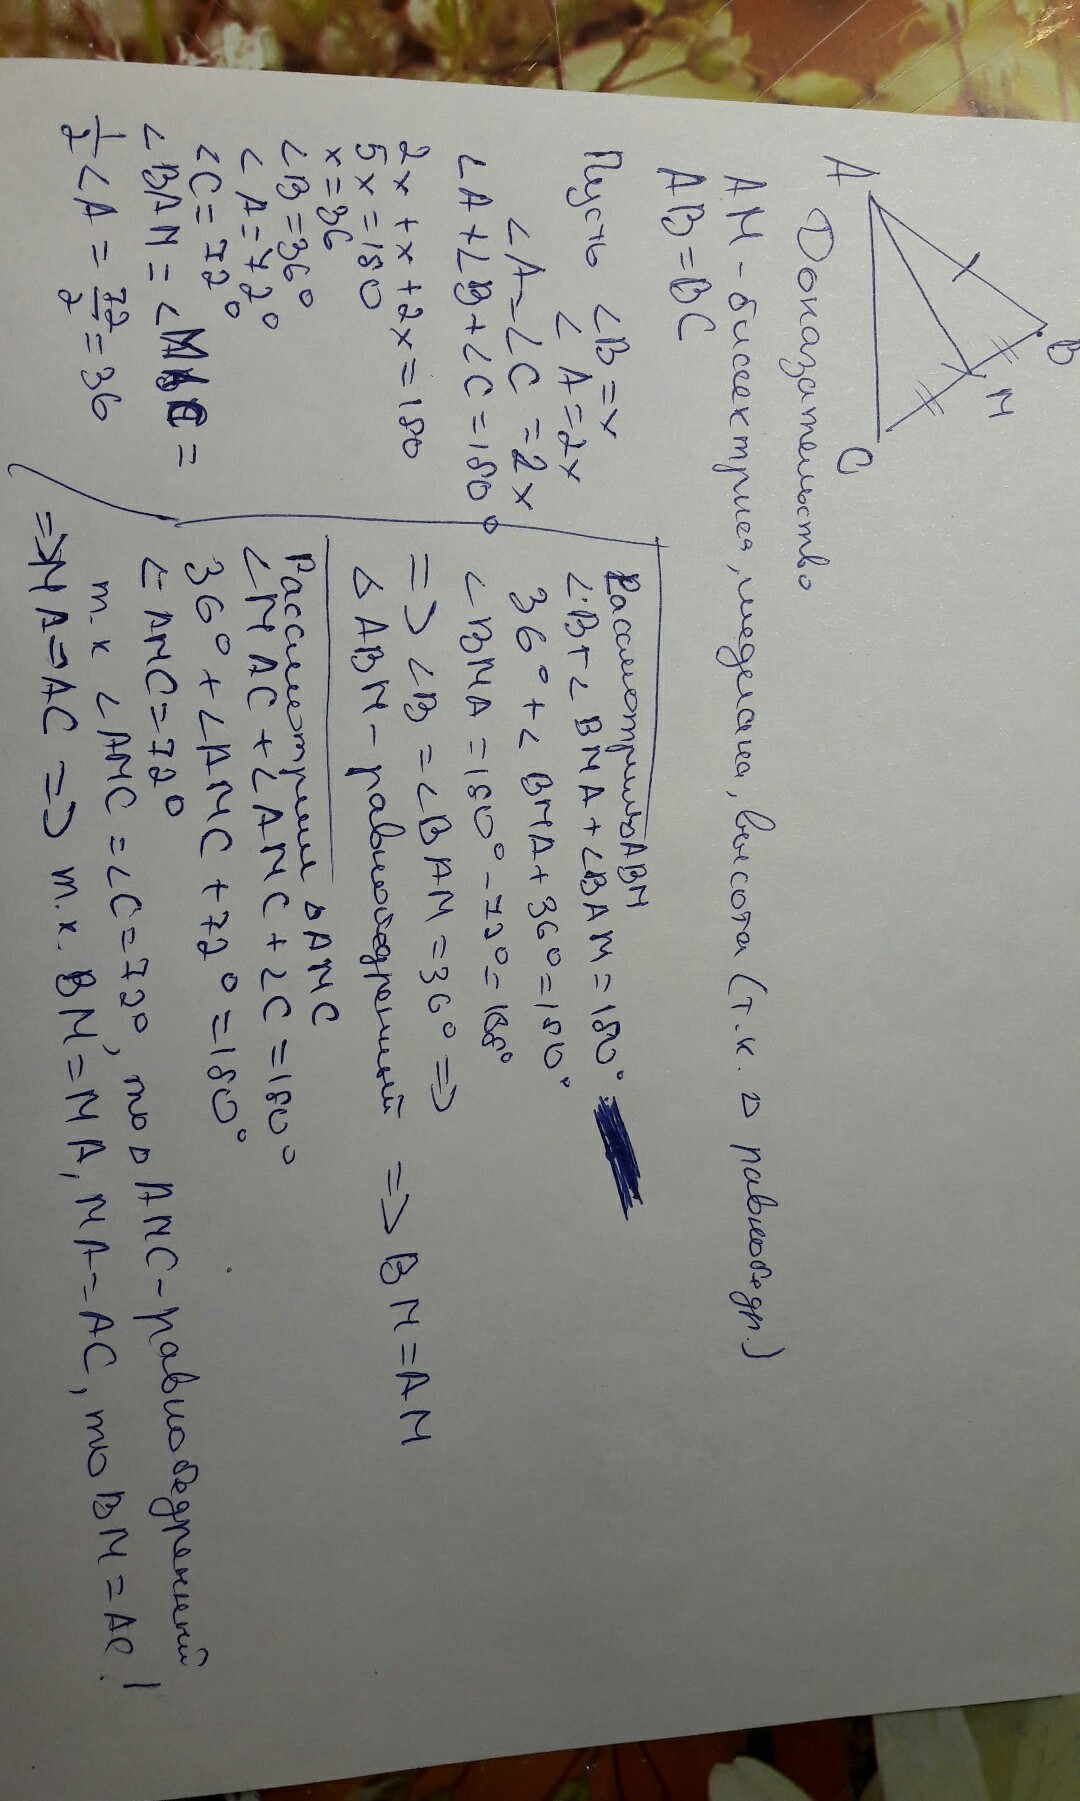 B
A
M
C
Доказательство
AM - биссектриса, медиана, высота (т.к. △ равнобедр.)
AB = BC
Пусть ∠B = x
∠A = 2x
∠A = ∠C = 2x
∠A + ∠B + ∠C = 180°
2x + x + 2x = 180
5x = 180
x = 36
∠B = 36°
∠A = 72°
∠C = 72°
∠BAM = ∠MAC =
1/2 ∠A = 72/2 = 36
Рассмотрим △ABM
∠B + ∠BMA + ∠BAM = 180°
36° + ∠BMA + 36° = 180°
∠BMA = 180° - 72° = 108°
=> ∠B = ∠BAM = 36° =>
△ABM - равнобедренный => BM = AM
Рассмотрим △AMC
∠MAC + ∠AMC + ∠C = 180°
36° + ∠AMC + 72° = 180°
∠AMC = 72°
т.к ∠AMC = ∠C = 72°, то △AMC - равнобедренный
=> MA = AC => т.к. BM = MA, MA = AC, то BM = AC!